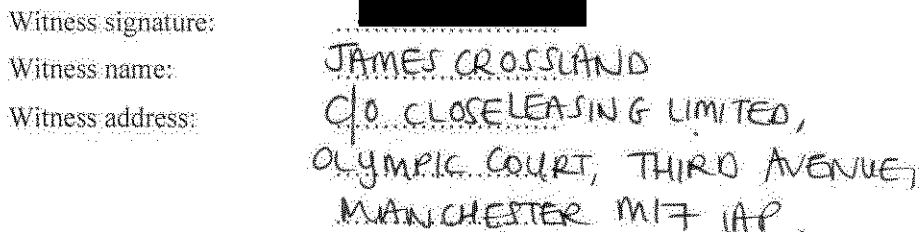 Witness signature:
Witness name: JAMES CROSSLAND
Witness address: C/O CLOSELEASING LIMITED,
OLYMPIC COURT, THIRD AVENUE,
MANCHESTER M17 1AP.